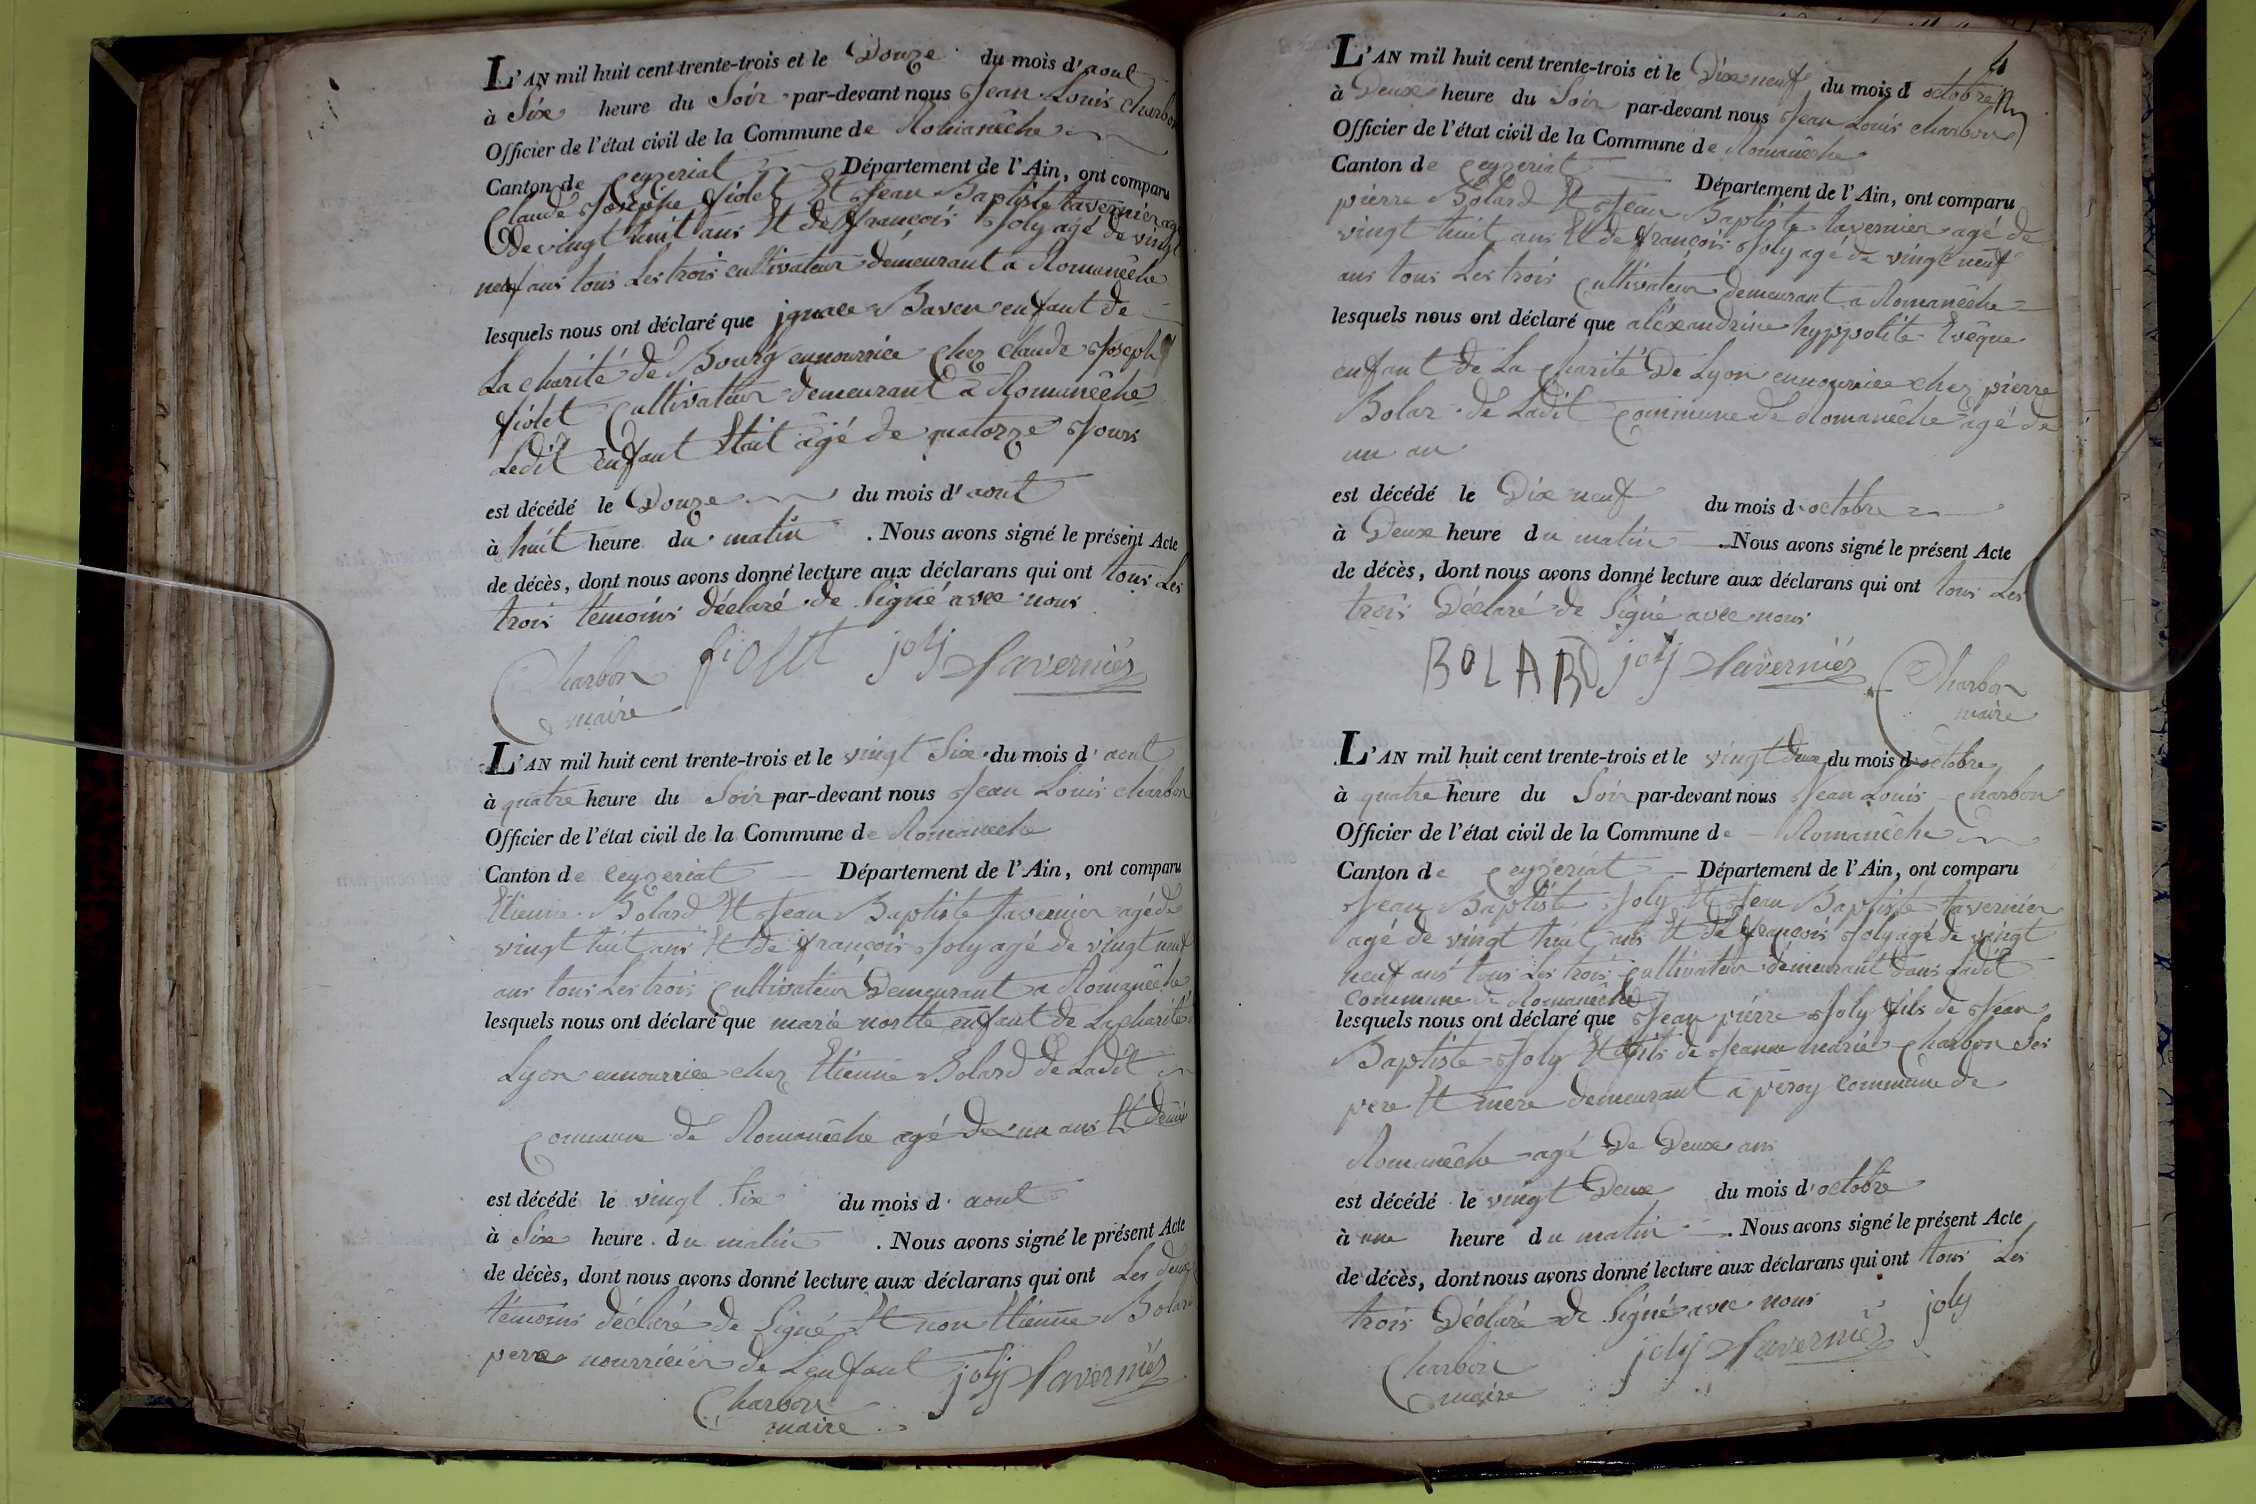 L'AN mil huit cent trente-trois et le Douze du mois d'aout
à Six heure du Soir par-devant nous Jean Louis Charbon
Officier de l'état civil de la Commune de Romanêche
Canton de Ceyzeriat Département de l'Ain, ont comparu
Claude Josephe fiolet Et Jean Baptiste tavernier agé
de vingt huit ans Et de françois Joly agé de vingt
neuf ans tous Les trois cultivateur demeurant a Romanêche
lesquels nous ont déclaré que ignace Baven enfant de
La charité de Bourg ennourrice chez claude Joseph
fiolet Cultivateur demeurant a Romanêche
Ledit enfant Etait agé de quatorze Jours
est décédé le Douze du mois d'aout
à huit heure du matin . Nous avons signé le présent Acte
de décès, dont nous avons donné lecture aux déclarans qui ont tous Les
trois témoins déclaré de Signé avec nous
Charbon fiolet joly Tavernier
maire
L'AN mil huit cent trente-trois et le vingt Six du mois d'aout
à quatre heure du Soir par-devant nous Jean Louis charbon
Officier de l'état civil de la Commune de Romanêche
Canton de Ceyzeriat Département de l'Ain, ont comparu
Etienne Bolard Et Jean Baptiste tavernier agé de
vingt huit ans Et de françois Joly agé de vingt neuf
ans tous Les trois Cultivateur Demeurant a Romanêche
lesquels nous ont déclaré que marie enfant de La charité
Lyon ennourrice chez Etienne Bolard de Ladit
Commune de Romanêche agé de un ans Et demi
est décédé le vingt Six du mois d'aout
à Six heure du matin . Nous avons signé le présent Acte
de décès, dont nous avons donné lecture aux déclarans qui ont Les deux
témoins déclaré de Signé Et non Etienne Bolard
perre nourricier de Lenfant joly Tavernier
Charbon
maire
4
L'AN mil huit cent trente-trois et le Dixneuf du mois d octobre
à Deux heure du Soir par-devant nous Jean Louis charbon
Officier de l'état civil de la Commune de Romanêche
Canton de Ceyzeriat Département de l'Ain, ont comparu
pierre Bolard Et Jean Baptiste tavernier agé de
vingt huit ans Et de françois Joly agé de vingt neuf
ans tous Les trois Cultivateur demeurant a Romanêche
lesquels nous ont déclaré que aléxandrine hyppolite Evêque
enfant de La charité De Lyon ennourrice chez pierre
Bolar de Ladit Commune de Romanêche agé de
un an
est décédé le Dix neuf du mois d'octobre
à Deux heure du matin . Nous avons signé le présent Acte
de décès, dont nous avons donné lecture aux déclarans qui ont tous Les
trois Déclaré de Signé avec nous
BOLARD joly Tavernier Charbon
maire
L'AN mil huit cent trente-trois et le vingt deux du mois d'octobre
à quatre heure du Soir par-devant nous Jean Louis Charbon
Officier de l'état civil de la Commune de Romanêche
Canton de Ceyzeriat Département de l'Ain, ont comparu
Jean Baptiste Joly Et Jean Baptiste tavernier
agé de vingt huit ans Et de françois Joly agé de vingt
neuf ans tous Les trois Cultivateur demeurant dans Ladit
Commune de Romanêche
lesquels nous ont déclaré que Jean pierre Joly fils de Jean
Baptiste Joly Et fils de Jeanne marie Charbon Ses
pere Et mere demeurant a peroy Commune de
Romanêche agé De Deux ans
est décédé le vingt Deux du mois d'octobre
à une heure du matin . Nous avons signé le présent Acte
de décès, dont nous avons donné lecture aux déclarans qui ont tous Les
trois Déclaré de Signé avec nous joly
Charbon joly Tavernier
maire